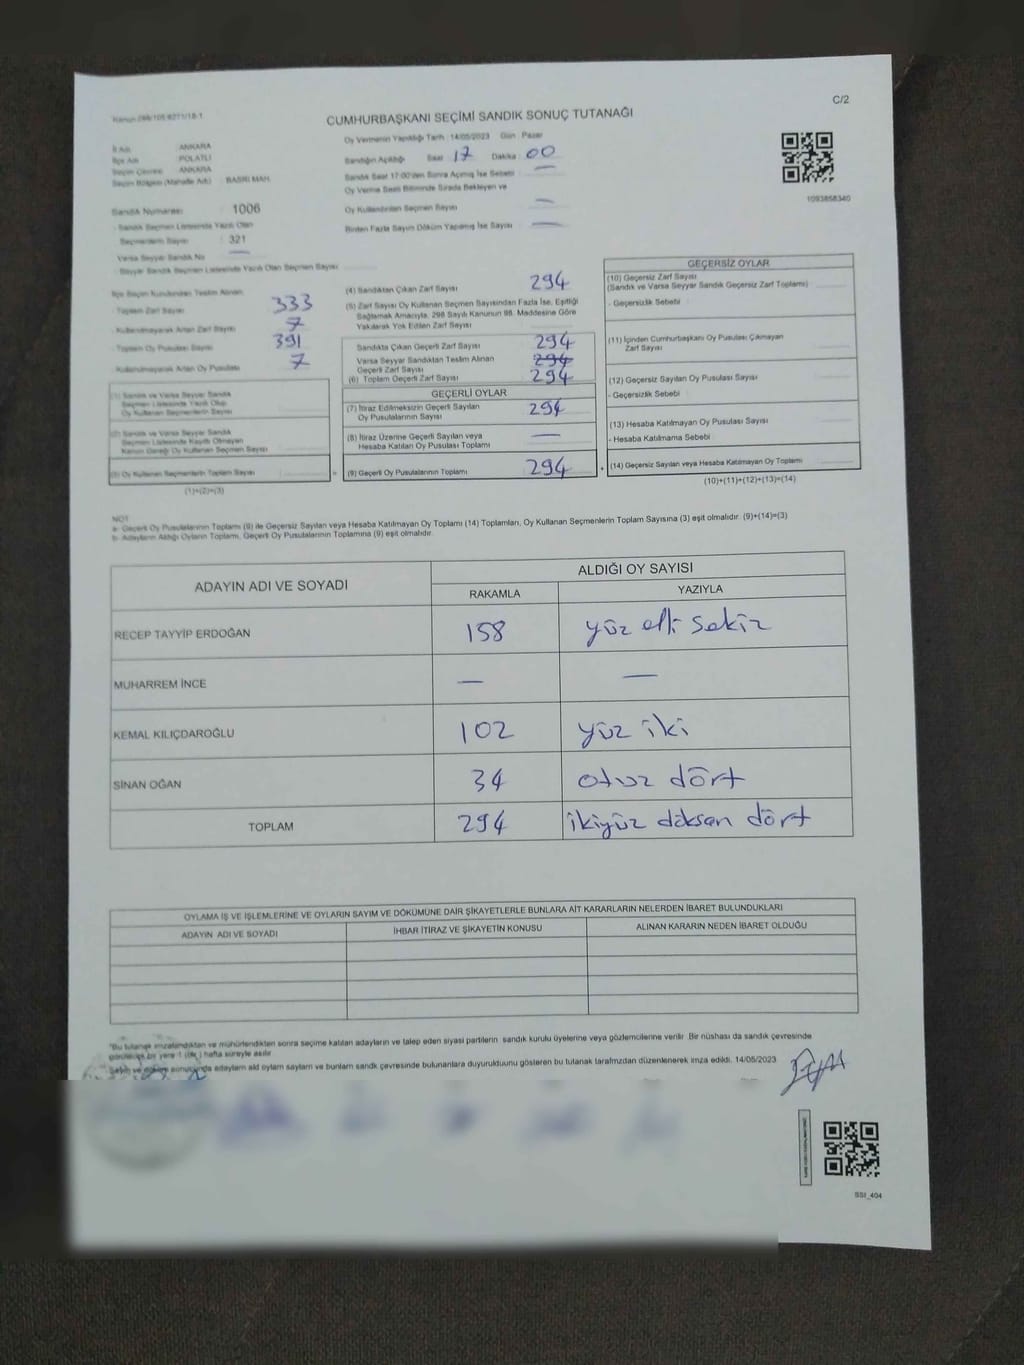 C/2
CUMHURBAŞKANI SEÇİMİ SANDIK SONUÇ TUTANAĞI
Oy Vermenin Yapıldığı Tarih : 14/05/2023 Gün : Pazar
Sandığın Açıldığı Saat 17 Dakika 00
Sandık Saat 17:00'den Sonra Açılmış İse Sebebi
Oy Verme Saati Bitiminde Sırada Bekleyen ve
Oy Kullandırılan Seçmen Sayısı —
Birden Fazla Sayım Döküm Yapılmış İse Sayısı —
1093858340
İl Adı : ANKARA
İlçe Adı : POLATLI
Seçim Çevresi : ANKARA
Seçim Bölgesi (Mahalle Adı) : BASRI MAH.
Sandık Numarası : 1006
Sandık Seçmen Listesinde Yazılı Olan
Seçmenlerin Sayısı : 321
Varsa Seyyar Sandık No —
Seyyar Sandık Seçmen Listesinde Yazılı Olan Seçmen Sayısı
İlçe Seçim Kurulundan Teslim Alınan
Toplam Zarf Sayısı 333
Kullanılmayarak Artan Zarf Sayısı 7
Toplam Oy Pusulası Sayısı 391
Kullanılmayarak Artan Oy Pusulası 7
(1) Sandık ve Varsa Seyyar Sandık
Seçmen Listesinde Yazılı Olup
Oy Kullanan Seçmenlerin Sayısı
(2) Sandık ve Varsa Seyyar Sandık
Seçmen Listesinde Kayıtlı Olmayan
Kanun Gereği Oy Kullanan Seçmen Sayısı
(3) Oy Kullanan Seçmenlerin Toplam Sayısı =
(1)+(2)=(3)
(4) Sandıktan Çıkan Zarf Sayısı 294
(5) Zarf Sayısı Oy Kullanan Seçmen Sayısından Fazla İse, Eşitliği
Sağlamak Amacıyla, 298 Sayılı Kanunun 98. Maddesine Göre
Yakılarak Yok Edilen Zarf Sayısı
Sandıkta Çıkan Geçerli Zarf Sayısı 294
Varsa Seyyar Sandıktan Teslim Alınan
Geçerli Zarf Sayısı 294
(6) Toplam Geçerli Zarf Sayısı 294
GEÇERLİ OYLAR
(7) İtiraz Edilmeksizin Geçerli Sayılan
Oy Pusulalarının Sayısı 294
(8) İtiraz Üzerine Geçerli Sayılan veya
Hesaba Katılan Oy Pusulası Toplamı —
(9) Geçerli Oy Pusulalarının Toplamı 294 +
GEÇERSİZ OYLAR
(10) Geçersiz Zarf Sayısı
(Sandık ve Varsa Seyyar Sandık Geçersiz Zarf Toplamı)
- Geçersizlik Sebebi
(11) İçinden Cumhurbaşkanı Oy Pusulası Çıkmayan
Zarf Sayısı
(12) Geçersiz Sayılan Oy Pusulası Sayısı
- Geçersizlik Sebebi
(13) Hesaba Katılmayan Oy Pusulası Sayısı
- Hesaba Katılmama Sebebi
(14) Geçersiz Sayılan veya Hesaba Katılmayan Oy Toplamı
(10)+(11)+(12)+(13)=(14)
NOT :
a- Geçerli Oy Pusulalarının Toplamı (9) ile Geçersiz Sayılan veya Hesaba Katılmayan Oy Toplamı (14) Toplamları, Oy Kullanan Seçmenlerin Toplam Sayısına (3) eşit olmalıdır. (9)+(14)=(3)
b- Adayların Aldığı Oyların Toplamı, Geçerli Oy Pusulalarının Toplamına (9) eşit olmalıdır.
ADAYIN ADI VE SOYADI ALDIĞI OY SAYISI
RAKAMLA YAZIYLA
RECEP TAYYİP ERDOĞAN 158 yüz elli sekiz
MUHARREM İNCE — —
KEMAL KILIÇDAROĞLU 102 yüz iki
SİNAN OĞAN 34 otuz dört
TOPLAM 294 ikiyüz doksan dört
OYLAMA İŞ VE İŞLEMLERİNE VE OYLARIN SAYIM VE DÖKÜMÜNE DAİR ŞİKAYETLERLE BUNLARA AİT KARARLARIN NELERDEN İBARET BULUNDUKLARI
ADAYIN ADI VE SOYADI İHBAR İTİRAZ VE ŞİKAYETİN KONUSU ALINAN KARARIN NEDEN İBARET OLDUĞU
*Bu tutanak imzalandıktan ve mühürlendikten sonra seçime katılan adayların ve talep eden siyasi partilerin sandık kurulu üyelerine veya gözlemcilerine verilir. Bir nüshası da sandık çevresinde
görülecek bir yere 1 (bir) hafta süreyle asılır.
Sayım ve döküm sonucunda adayların aldı oyların sayıları ve bunların sandık çevresinde bulunanlara duyurulduğunu gösteren bu tutanak tarafımızdan düzenlenerek imza edildi. 14/05/2023
SSI_404